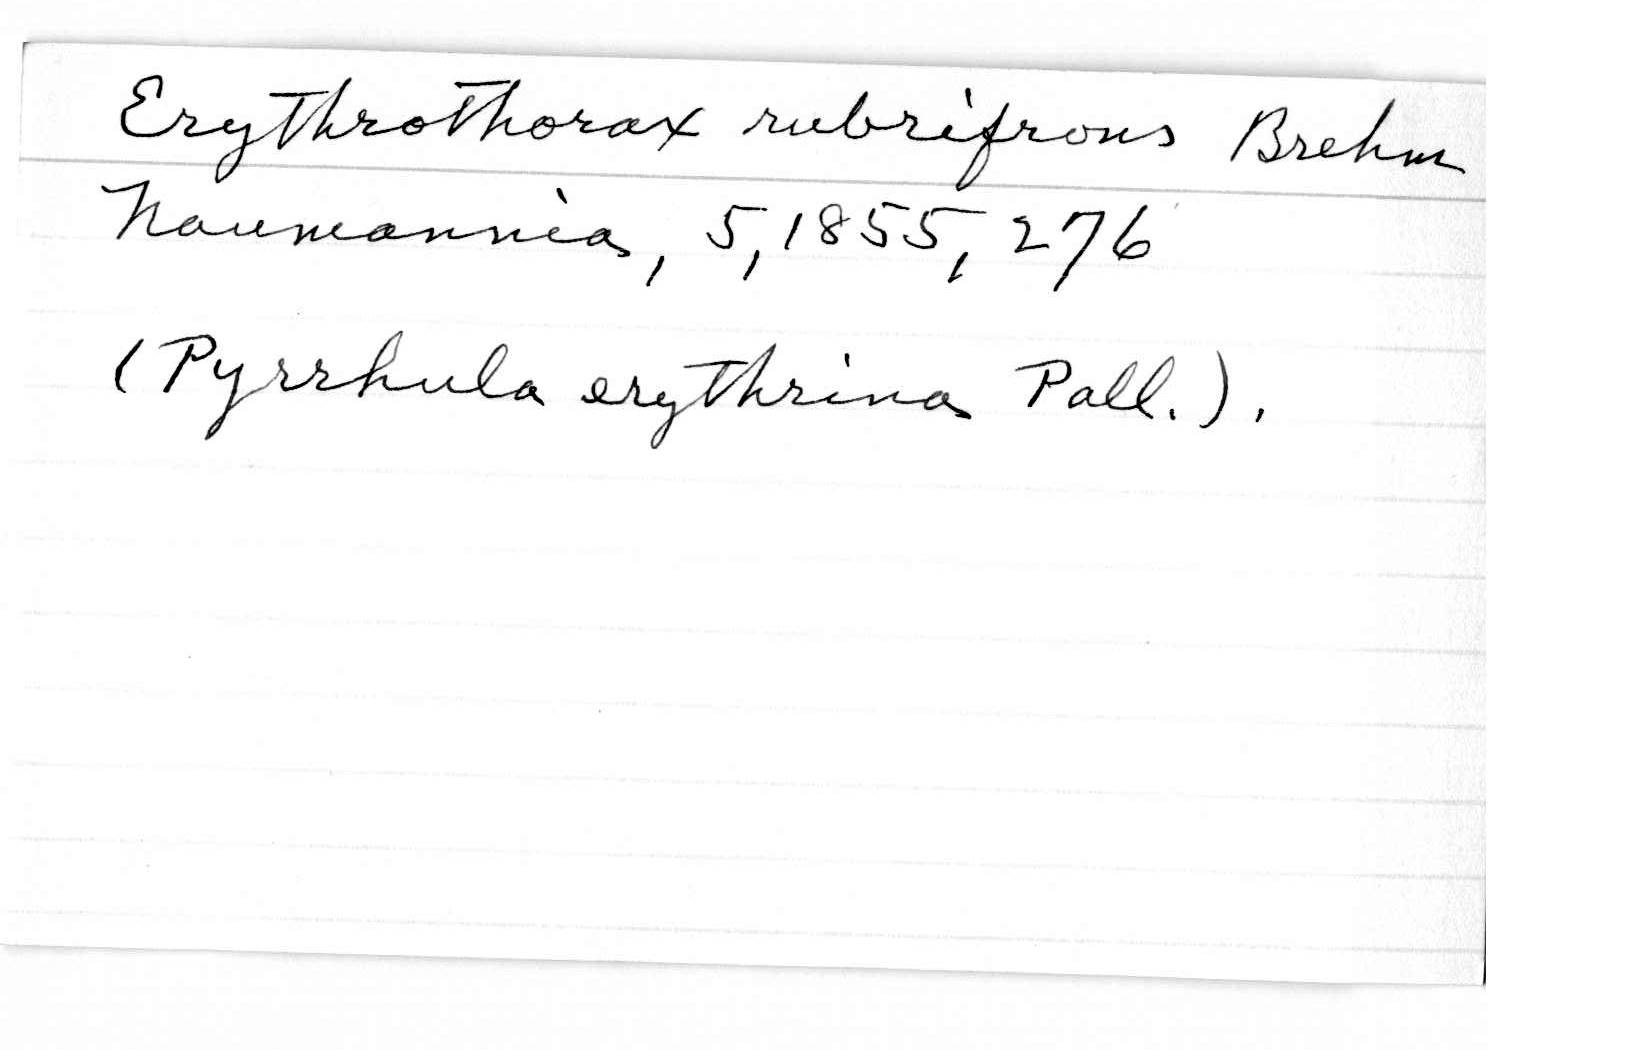 Erythrothorax rubrifrons Brehm
Naumannia, 5, 1855, 276
(Pyrrhula erythrina Pall.).